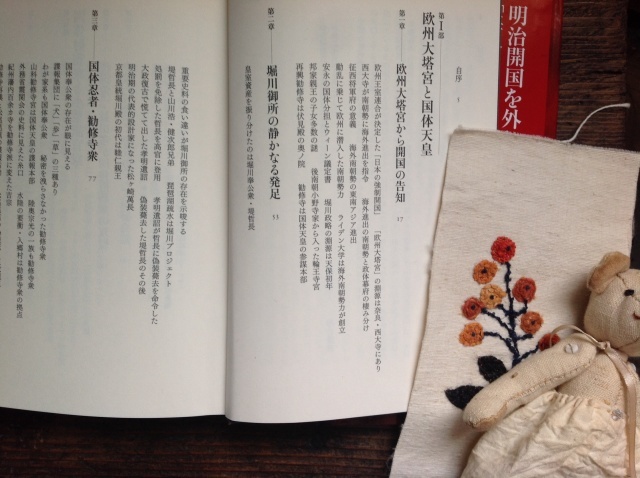 明治開国を外
自序 1
第Ⅰ部
欧州大塔宮と国体天皇
第一章
欧州大塔宮から開国の告知 17
欧州王家連合が決定した「日本の強制開国」 「欧州大塔宮」の淵源は奈良・西大寺にあり
西大寺が南朝勢に海外進出を指令 海外進出の南朝勢と政体幕府の棲み分け
征西将軍府の意義 海外南朝勢の東南アジア進出
動乱に乗じて欧州に潜入した南朝勢力 ライデン大学は海外南朝勢力が創立
安永の国体分担とウィーン議定書 堀川政略の淵源は天保初年
邦家親王の子女多数の謎 後南朝小野寺家から入った輪王寺宮
再興勧修寺は伏見殿の奥ノ院 勧修寺は国体天皇の参謀本部
第二章
堀川御所の静かなる発足 53
皇室資産を振り分けたのは堀川奉公衆・堤哲長
重要史料の食い違いが堀川御所の存在を示唆する
堤哲長と山川浩・健次郎兄弟 琵琶湖疏水は堀川プロジェクト
処罰を免除した哲長を高官に登用 孝明遺詔が哲長に偽装薨去を命令した
大政復古で慌てて出した孝明遺詔 偽装薨去した堤哲長のその後
明治期の代表的設計家になった松ヶ崎萬長
京都皇統堀川殿の初代は睦仁親王
第三章
国体忍者・勧修寺衆 77
国体奉公衆の存在が顕に見える
諜報集団に「大」「歩」「草」の三種あり
わが家系も国体奉公衆 秘事を洩らさなかった勧修寺衆
山科勧修寺宮は国体天皇の諜報本部 陸奥宗光の一族も勧修寺衆
外務省霊園会の史料に見えた井口 水陸の要衝・入郷村は勧修寺衆の拠点